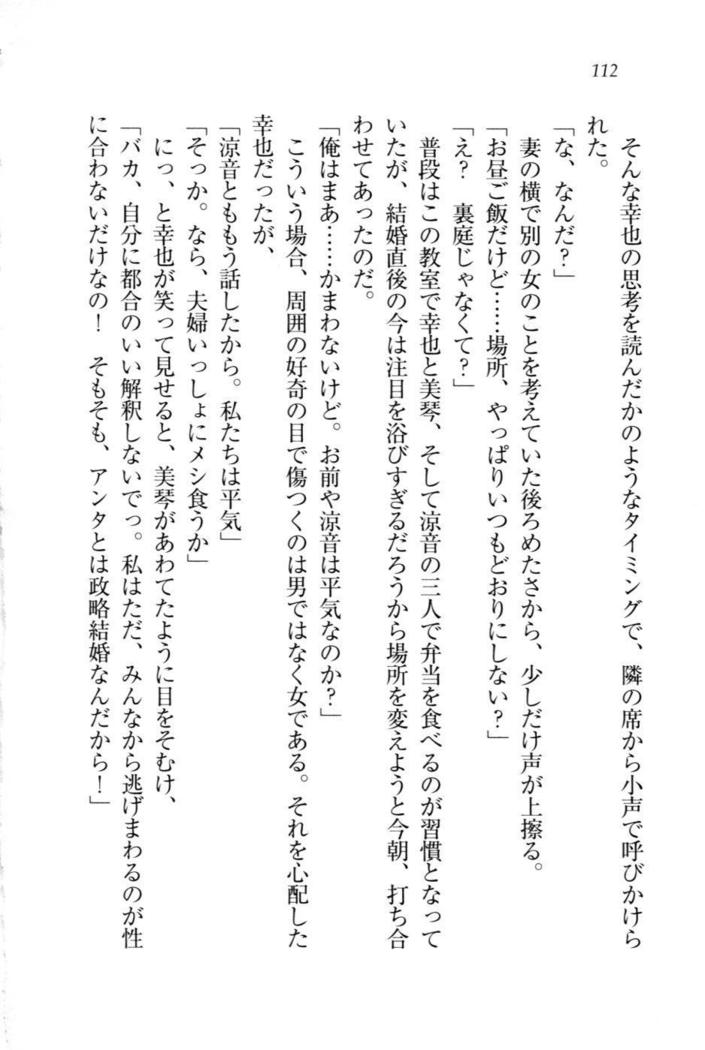 112
そんな幸也の思考を読んだかのようなタイミングで、隣の席から小声で呼びかけら
れた。
「な、なんだ？」
妻の横で別の女のことを考えていた後ろめたさから、少しだけ声が上擦る。
「お昼ご飯だけど……場所、やっぱりいつもどおりにしない？」
「え？　裏庭じゃなくて？」
普段はこの教室で幸也と美琴、そして涼音の三人で弁当を食べるのが習慣となって
いたが、結婚直後の今は注目を浴びすぎるだろうから場所を変えようと今朝、打ち合
わせてあったのだ。
「俺はまあ……かまわないけど。お前や涼音は平気なのか？」
こういう場合、周囲の好奇の目で傷つくのは男ではなく女である。それを心配した
幸也だったが、
「涼音とももう話したから。私たちは平気」
「そっか。なら、夫婦いっしょにメシ食うか」
にっ、と幸也が笑って見せると、美琴があわてたように目をそむけ、
「バカ、自分に都合のいい解釈しないでっ。私はただ、みんなから逃げまわるのが性
に合わないだけなの！　そもそも、アンタとは政略結婚なんだから！」